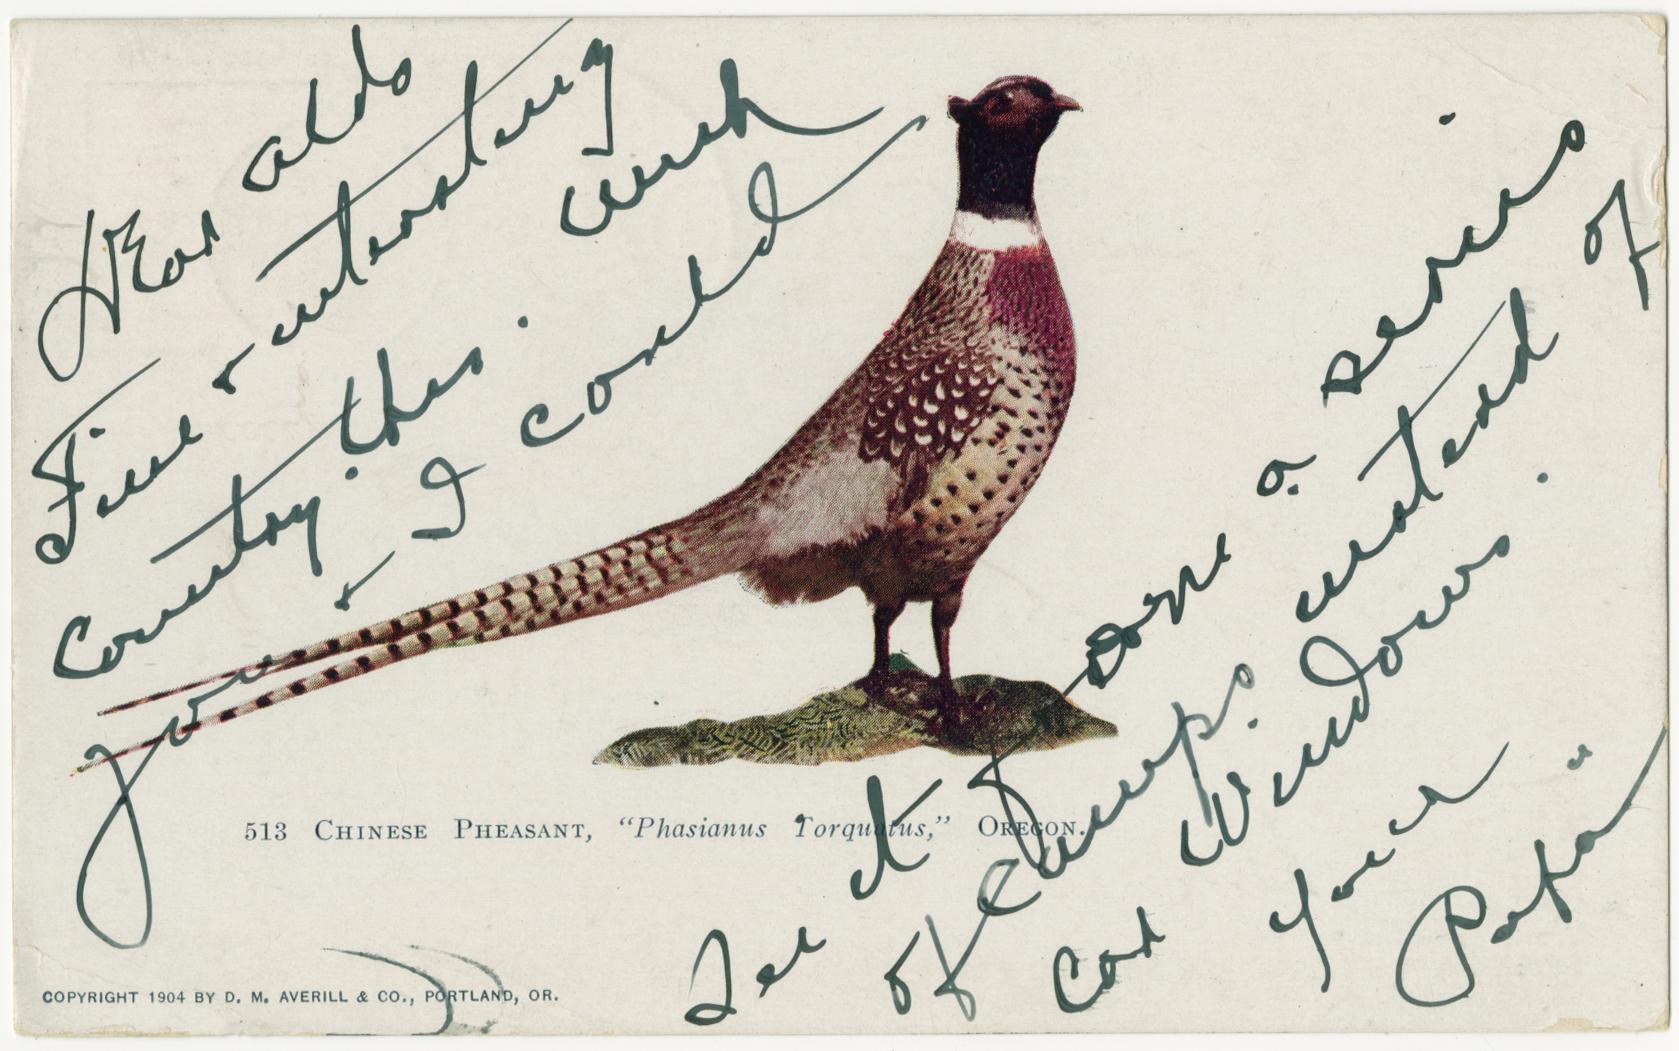 Dear aldo
Fine & interesting
Country this. wish
you & I could
See it from a series
of Camps instead of
Car Windows.
Your
Papa
513 CHINESE PHEASANT, "Phasianus Torquatus," OREGON.
COPYRIGHT 1904 BY D. M. AVERILL & CO., PORTLAND, OR.